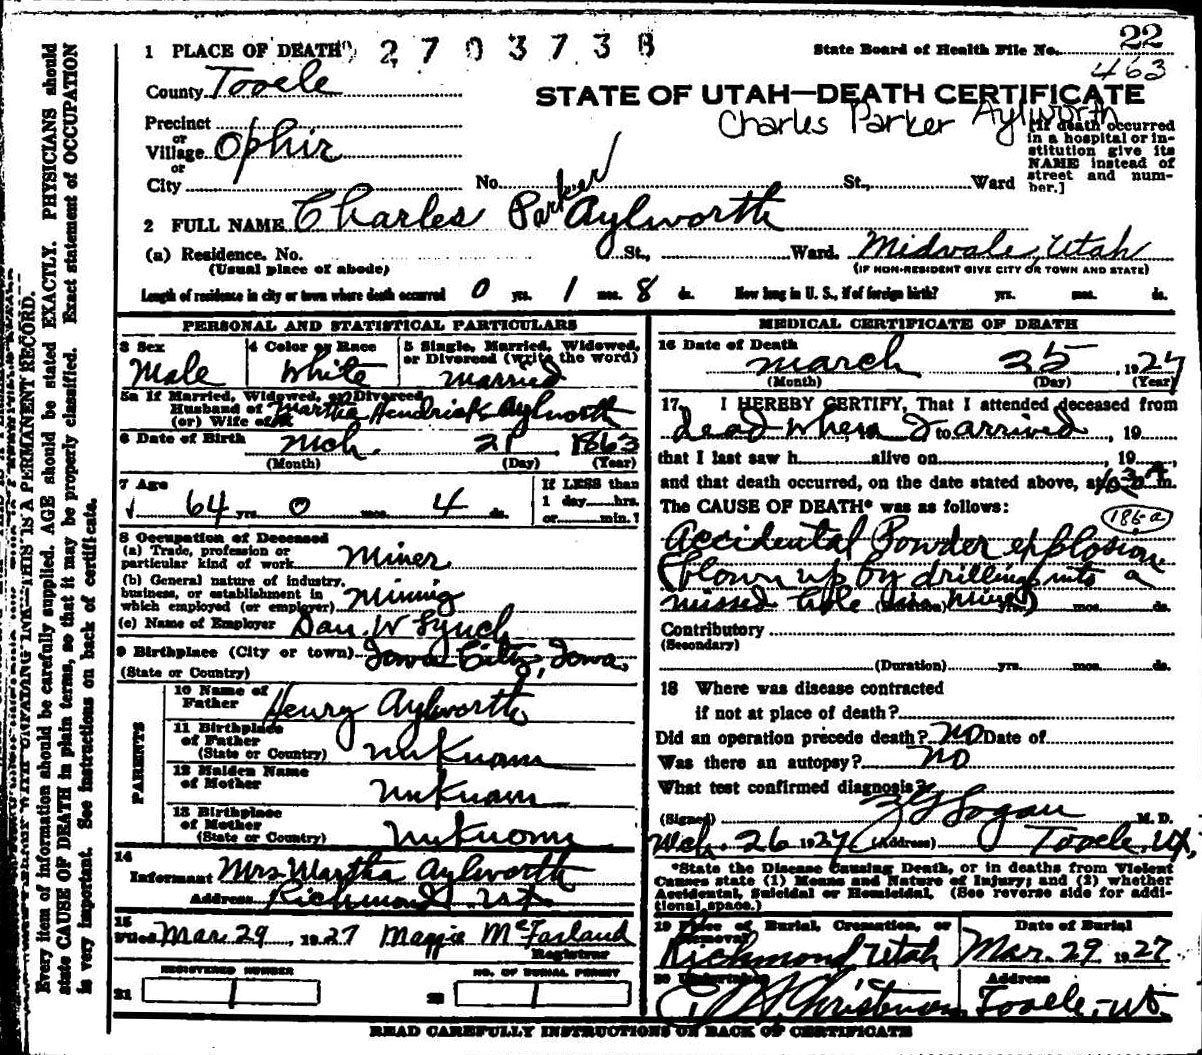 1 PLACE OF DEATH 2703738
State Board of Health File No. 22
463
County Tooele
STATE OF UTAH—DEATH CERTIFICATE
Charles Parker Aylworth
Precinct
or
Village Ophir
or
City No. St., Ward
[If death occurred in a hospital or institution give its NAME instead of street and number.]
2 FULL NAME Charles Parker Aylworth
(a) Residence. No. St., Ward. Midvale, Utah
(Usual place of abode) (IF NON-RESIDENT GIVE CITY OR TOWN AND STATE)
Length of residence in city or town where death occurred 0 yrs. 1 mos. 8 ds. How long in U. S., if of foreign birth? yrs. mos. ds.
PERSONAL AND STATISTICAL PARTICULARS
3 Sex Male
4 Color or Race White
5 Single, Married, Widowed, or Divorced (write the word) married
5a If Married, Widowed, or Divorced
Husband of Martha Hendricks Aylworth
(or) Wife of
6 Date of Birth Mch. 21 1863
(Month) (Day) (Year)
7 Age 64 yrs. 0 mos. 4 ds.
If LESS than
1 day hrs.
or min.?
8 Occupation of Deceased
(a) Trade, profession or particular kind of work Miner
(b) General nature of industry, business, or establishment in which employed (or employer) Mining
(c) Name of Employer Dan. W Lynch
9 Birthplace (City or town) Iowa City, Iowa.
(State or Country)
PARENTS
10 Name of Father Henry Aylworth
11 Birthplace of Father
(State or Country) unknown
12 Maiden Name of Mother unknown
13 Birthplace of Mother
(State or Country) unknown
14
Informant Mrs Martha Aylworth
Address Richmond Ut.
15
Filed Mar. 29, 1927 Maggie McFarland
Registrar
REGISTERED NUMBER NO. OF BURIAL PERMIT
21 22
MEDICAL CERTIFICATE OF DEATH
16 Date of Death
March 25, 1927
(Month) (Day) (Year)
17. I HEREBY CERTIFY, That I attended deceased from
dead when I to arrived, 19
that I last saw h alive on , 19
and that death occurred, on the date stated above, at m.
The CAUSE OF DEATH* was as follows:
186-a
Accidental Powder explosion
(blown up by drilling into a
missed hole in mine)
(Duration) yrs. mos. ds.
Contributory
(Secondary)
(Duration) yrs. mos. ds.
18 Where was disease contracted
if not at place of death?
Did an operation precede death? no Date of
Was there an autopsy? no
What test confirmed diagnosis?
(Signed) Logan M. D.
Mch. 26 1927 (Address) Tooele, Ut.
*State the Disease Causing Death, or in deaths from Violent
Causes state (1) Means and Nature of Injury; and (2) whether
Accidental, Suicidal or Homicidal. (See reverse side for additional space.)
19 Place of Burial, Cremation, or Removal Richmond, Utah
Date of Burial Mar. 29 1927
20 Undertaker Christensen
Address Tooele, Ut.
READ CAREFULLY INSTRUCTIONS ON BACK OF CERTIFICATE
THIS IS A PERMANENT RECORD.
Every item of information should be carefully supplied. AGE should be stated EXACTLY. PHYSICIANS should
state CAUSE OF DEATH in plain terms, so that it may be properly classified. Exact statement of OCCUPATION
is very important. See instructions on back of certificate.